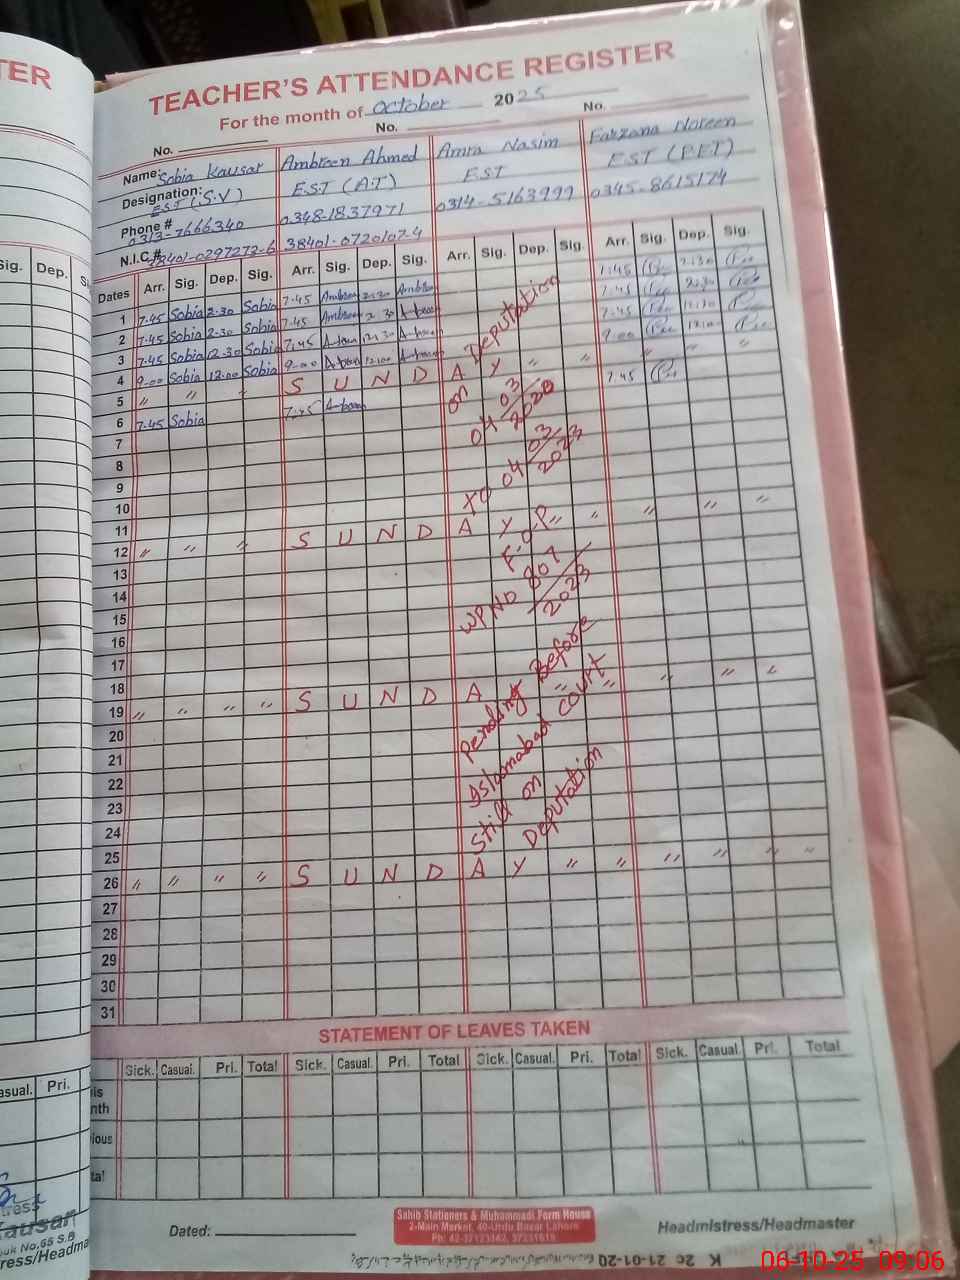 TER
TEACHER'S ATTENDANCE REGISTER
For the month of October 2025
No. No. No.
Name: Sobia Kausar Ambreen Ahmed Amra Nasim Farzana Noreen
Designation: EST (S.V) EST (AT) EST EST (PET)
Phone # 0313-7666340 0348-1837971 0314-5163999 0345-8615174
N.I.C.# 38401-0297272-6 38401-0720107-4
Sig. Dep. Dates Arr. Sig. Dep. Sig. Arr. Sig. Dep. Sig. Arr. Sig. Dep. Sig. Arr. Sig. Dep. Sig.
1 7.45 Sobia 2.30 Sobia 7.45 Ambreen 2.30 Ambreen 7.45 2.30
2 7.45 Sobia 2.30 Sobia 7.45 Ambreen 2.30 7.45 2.30
3 7.45 Sobia 12.30 Sobia 7.45 12.30 7.45 12.30
4 9.00 Sobia 12.00 Sobia 9.00 12.00 9.00 12.00
5 " " " S U N D A Y " " " " "
6 7.45 Sobia 7.45 7.45
7
8
9
10
11
12 " " " S U N D A Y " " " " "
13
14
15
16
17
18
19 " " " " S U N D A " " " " "
20
21
22
23
24
25
26 " " " " S U N D A Y " " " " " "
27
28
29
30
31
on Deputation
04 03/2020
to 04 03/2023
F.O.P
WPNO 807/2023
Pending Before
Islamabad court
Still on
Deputation
STATEMENT OF LEAVES TAKEN
Sick. Casual. Pri. Total Sick. Casual. Pri. Total Sick. Casual. Pri. Total Sick. Casual. Pri. Total
asual. Pri.
his
nth
ious
tal
tress
Kausar
uk No.65 S.B
ress/Headma
Dated:
Sahib Stationers & Muhammadi Form House
2-Main Market, 40-Urdu Bazar Lahore
Ph: 42-37123342, 37231619
Headmistress/Headmaster
06-10-25 09:06